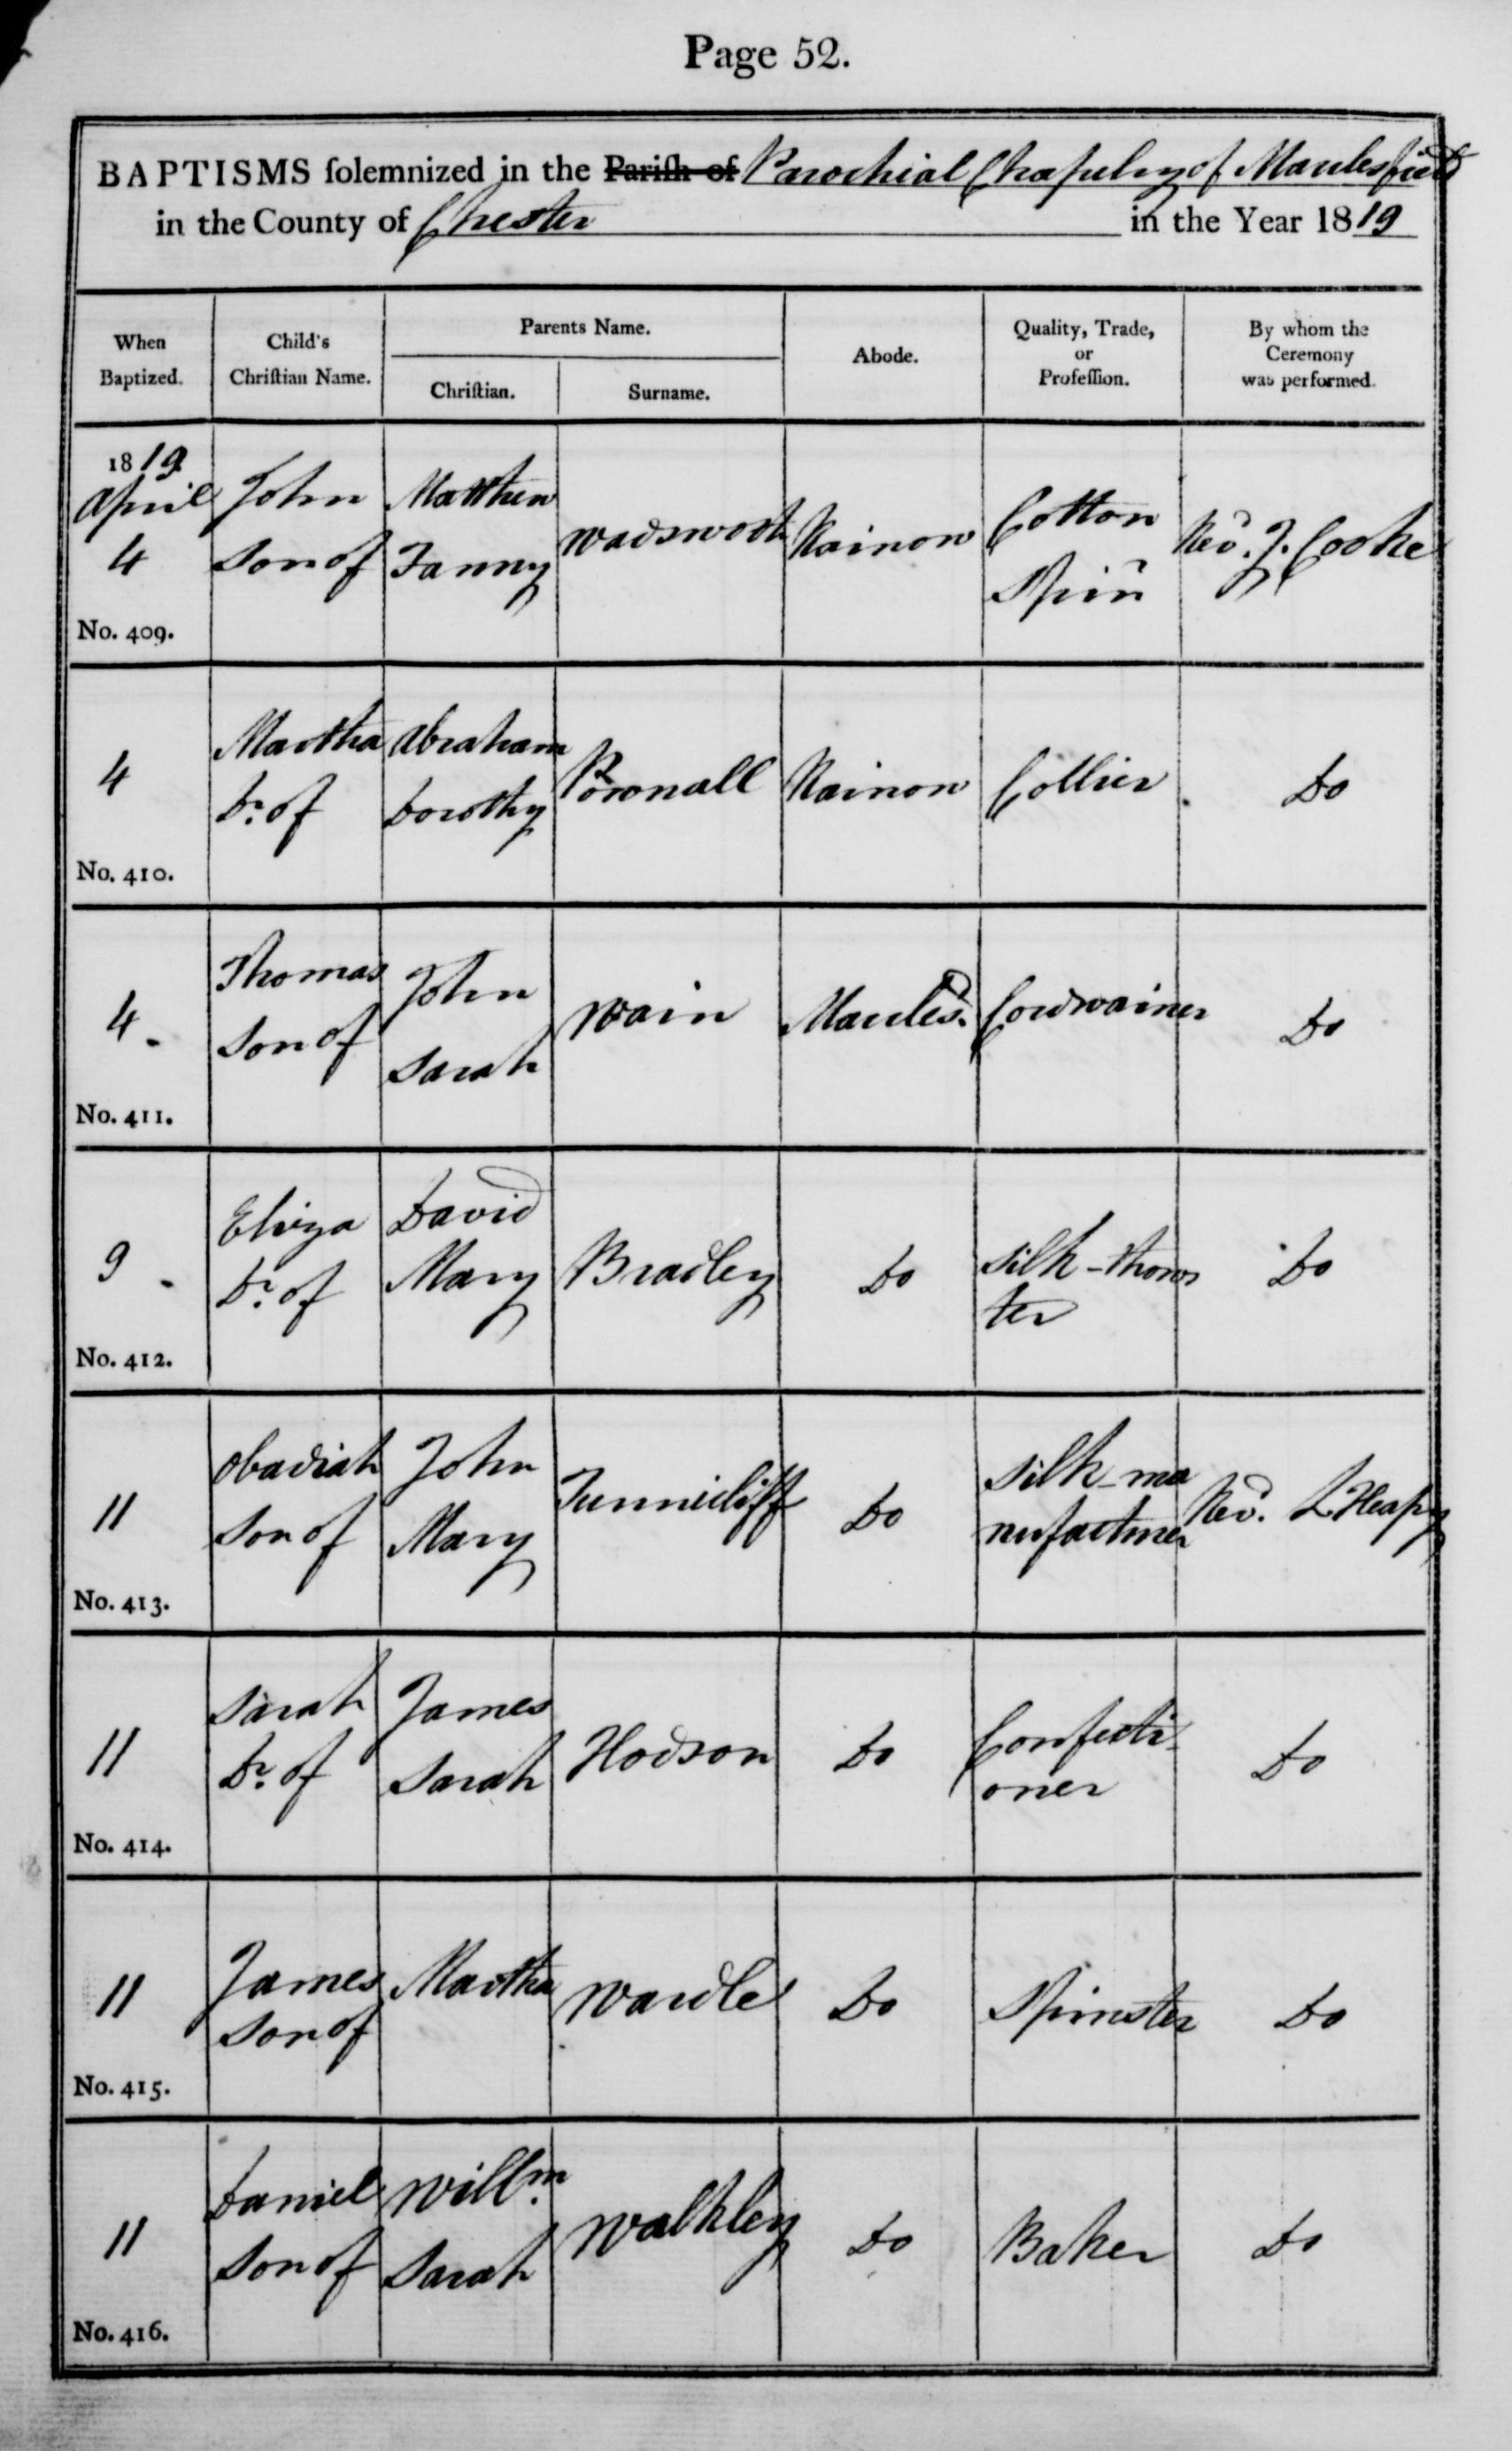 Page 52.
BAPTISMS solemnized in the Parish of Parochial Chapelry of Macclesfield
in the County of Chester in the Year 1819
When Baptized.
Child's Christian Name.
Parents Name.
Christian.
Surname.
Abode.
Quality, Trade, or Profession.
By whom the Ceremony was performed.
1819 April 4 No. 409.
John son of
Matthew Fanny
Wadsworth
Rainow
Cotton Spinr
Revd. J. Cooke
4 No. 410.
Martha Dr. of
Abraham Dorothy
Pownall
Rainow
Collier
Do
4 No. 411.
Thomas son of
John Sarah
Wain
Maccles.d
Cordwainer
Do
9 No. 412.
Eliza Dr. of
David Mary
Bradley
Do
Silk-throws ter
Do
11 No. 413.
Obadiah son of
John Mary
Tunnicliff
Do
Silk-ma nufacturer
Revd. L Heapy
11 No. 414.
Sarah Dr. of
James Sarah
Hodson
Do
Confecti- oner
Do
11 No. 415.
James son of
Martha
Wardle
Do
Spinster
Do
11 No. 416.
Daniel son of
Willm. Sarah
Walkley
Do
Baker
Do